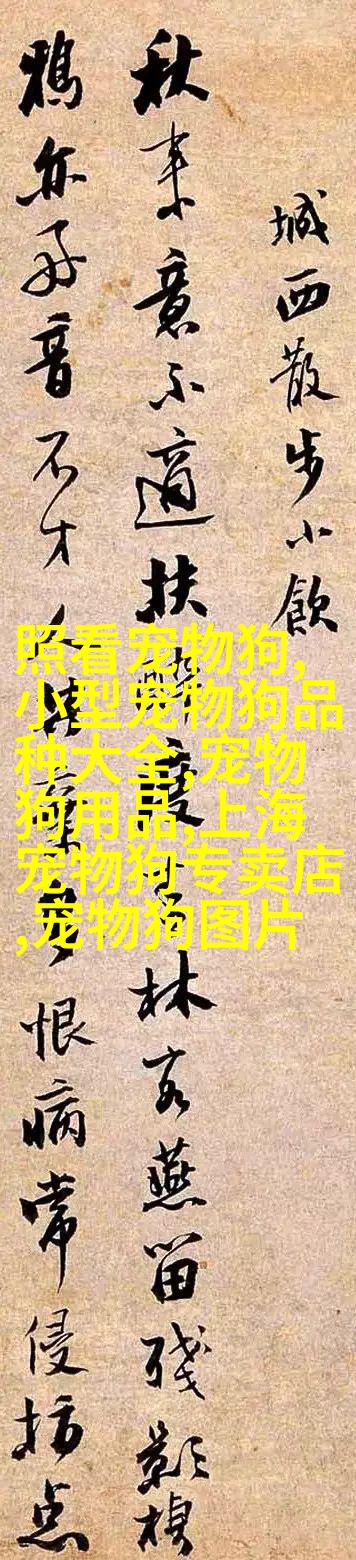 城西散步小飲
秋来意不適扶度林客燕留殘影棲
鴉亦好音不才人棄恨病常侵点
照看宠物狗,
小型宠物狗品
种大全,宠物
狗用品,上海
宠物狗专卖店
,宠物狗图片